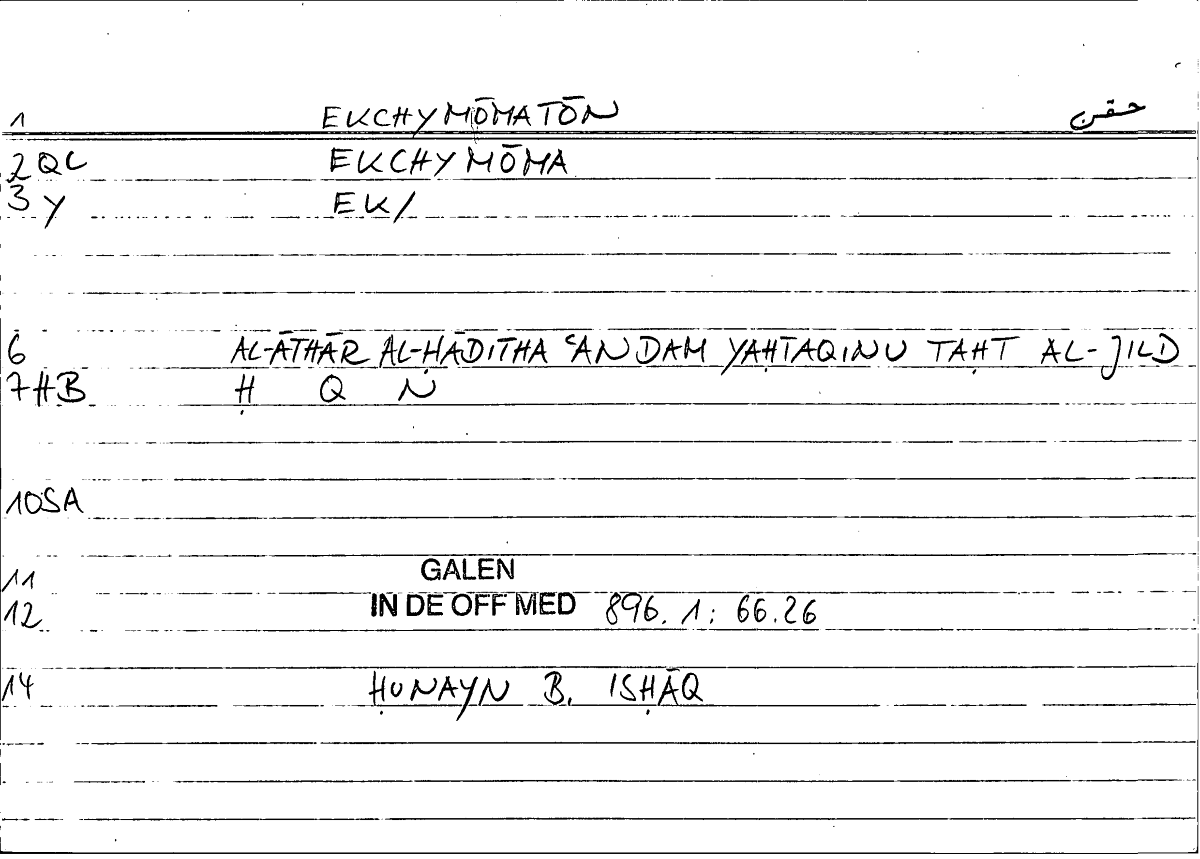 1 EKCHYMŌMATŌN حقن
2 QL EKCHYMŌMA
3 Y EK/
6 AL-ĀTHĀR AL-ḤĀDITHA ʿAN DAM YAḤTAQINU TAḤT AL-JILD
7 HB Ḥ Q N
10 SA
11 GALEN
12 IN DE OFF MED 896.1: 66.26
14 ḤUNAYN B. ISḤĀQ